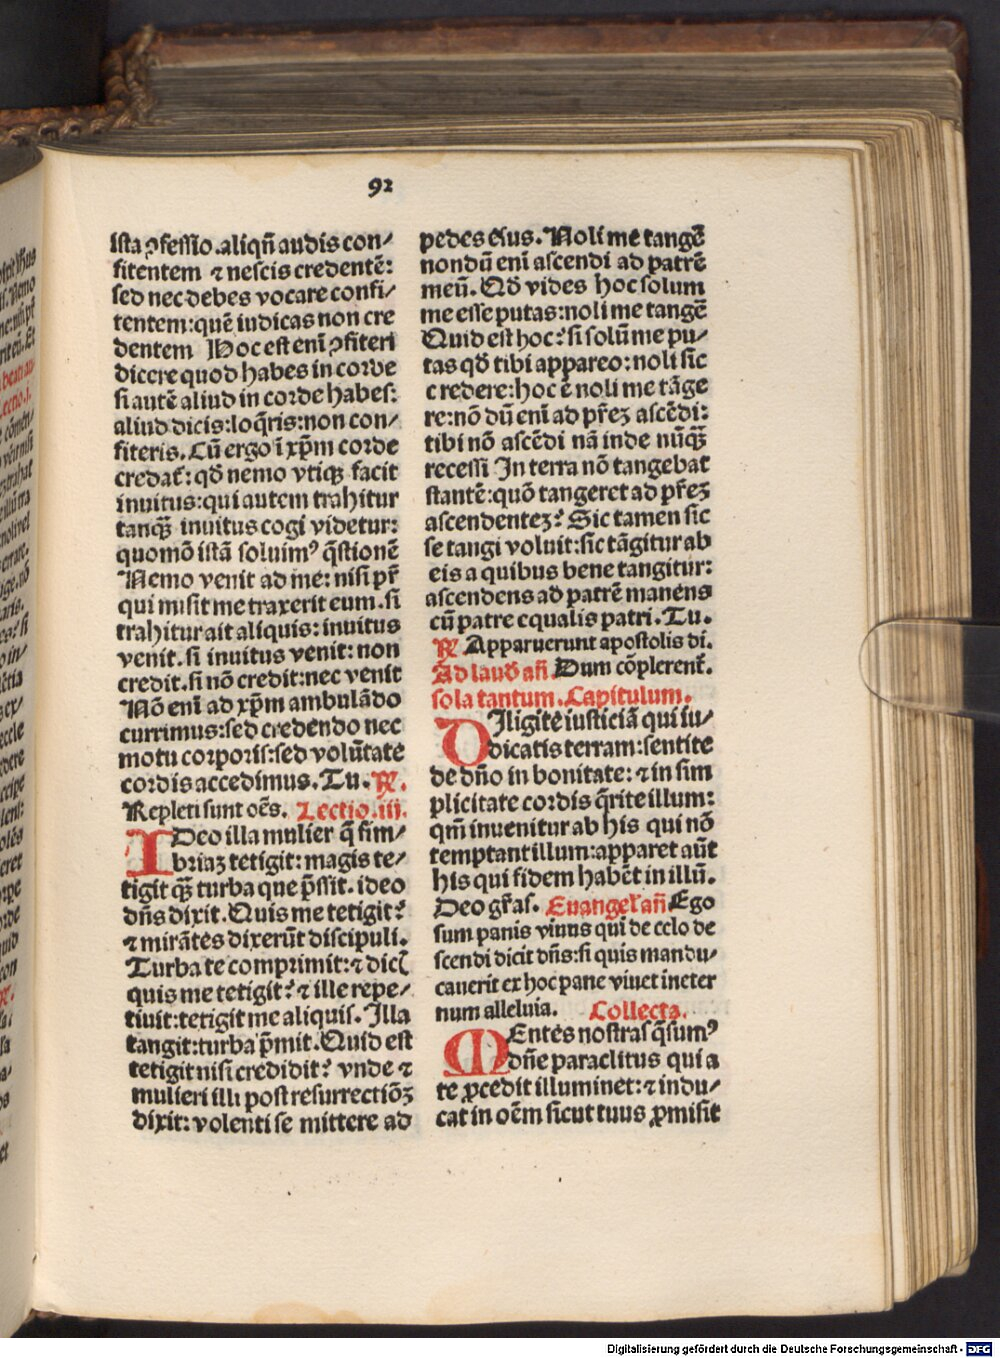 92
ista ꝯfessio.aliqñ audis con⸗
fitentem ⁊ nescis credentē:
sed nec debes vocare confi⸗
tentem:quē iudicas non cre
dentem Hoc est enī ꝯfiteri
dicere quod habes in corde
si autē aliud in corde habes:
aliud dicis:loq̄ris:non con⸗
fiteris. Cū ergo ī xp̄m corde
credat᷑: qđ nemo vtiqꝫ facit
inuitus:qui autem trahitur
tanqꝫ̄ inuitus cogi videtur:
quomō istā soluimꝰ q̄stionē
Nemo venit ad me: nisi pr̄
qui misit me traxerit eum. si
trahitur ait aliquis: inuitus
venit. si inuitus venit: non
credit. si nō credit:nec venit
Nō enī ad xp̄m ambulādo
currimus:sed credendo nec
motu corporis:sed volūtate
cordis accedimus. Tu. ℟.
Repleti sunt oēs. Lectio.iij.
IDeo illa mulier q̄ fim⸗
briaꝫ tetigit: magis te⸗
tigit qꝫ̄ turba que p̄ssit. ideo
dn̄s dixit. Quis me tetigit?
⁊ mirātes dixerūt discipuli.
Turba te comprimit:⁊ dicĩ
quis me tetigit? ⁊ ille repe⸗
tiuit:tetigit me aliquis. Illa
tangit:turba p̄mit. Quid est
tetigit nisi credidit? vnde ⁊
mulieri illi post resurrectiōꝫ
dixit: volenti se mittere ad
pedes eius. Noli me tangē
nondū enī ascendi ad patrē
meū. Qđ vides hoc solum
me esse putas:noli me tangē
Quid est hoc? si solū me pu⸗
tas qđ tibi appareo: noli sic
credere:hoc ē noli me tāge
re:nō dū enī ad pr̄eꝫ ascēdi:
tibi nō ascēdi nā inde nūqꝫ̄
recessi In terra nō tangebat
stantē:quō tangeret ad pr̄eꝫ
ascendenteꝫ? Sic tamen sic
se tangi voluit:sic tāgitur ab
eis a quibus bene tangitur:
ascendens ad patrē manens
cū patre equalis patri. Tu.
℟. Apparuerunt apostolis di.
Ad lauđ añ. Dum cōplerent᷑.
sola tantum. Capitulum.
DIligite iusticiā qui iu⸗
dicatis terram:sentite
de dn̄o in bonitate: ⁊ in sim
plicitate cordis q̄rite illum:
qm̄ inuenitur ab his qui nō
temptant illum:apparet aūt
his qui fidem habēt in illū.
Deo gr̄as. Euangeł añ Ego
sum panis viuus qui de celo de
scendi dicit dn̄s:si quis mandu⸗
cauerit ex hoc pane viuet ineter
num alleluia. Collecta.
MEntes nostras q̄sumꝰ
dn̄e paraclitus qui a
te ꝓcedit illuminet: ⁊ indu⸗
cat in oēm sicut tuus ꝓmisit
Digitalisierung gefördert durch die Deutsche Forschungsgemeinschaft - DFG